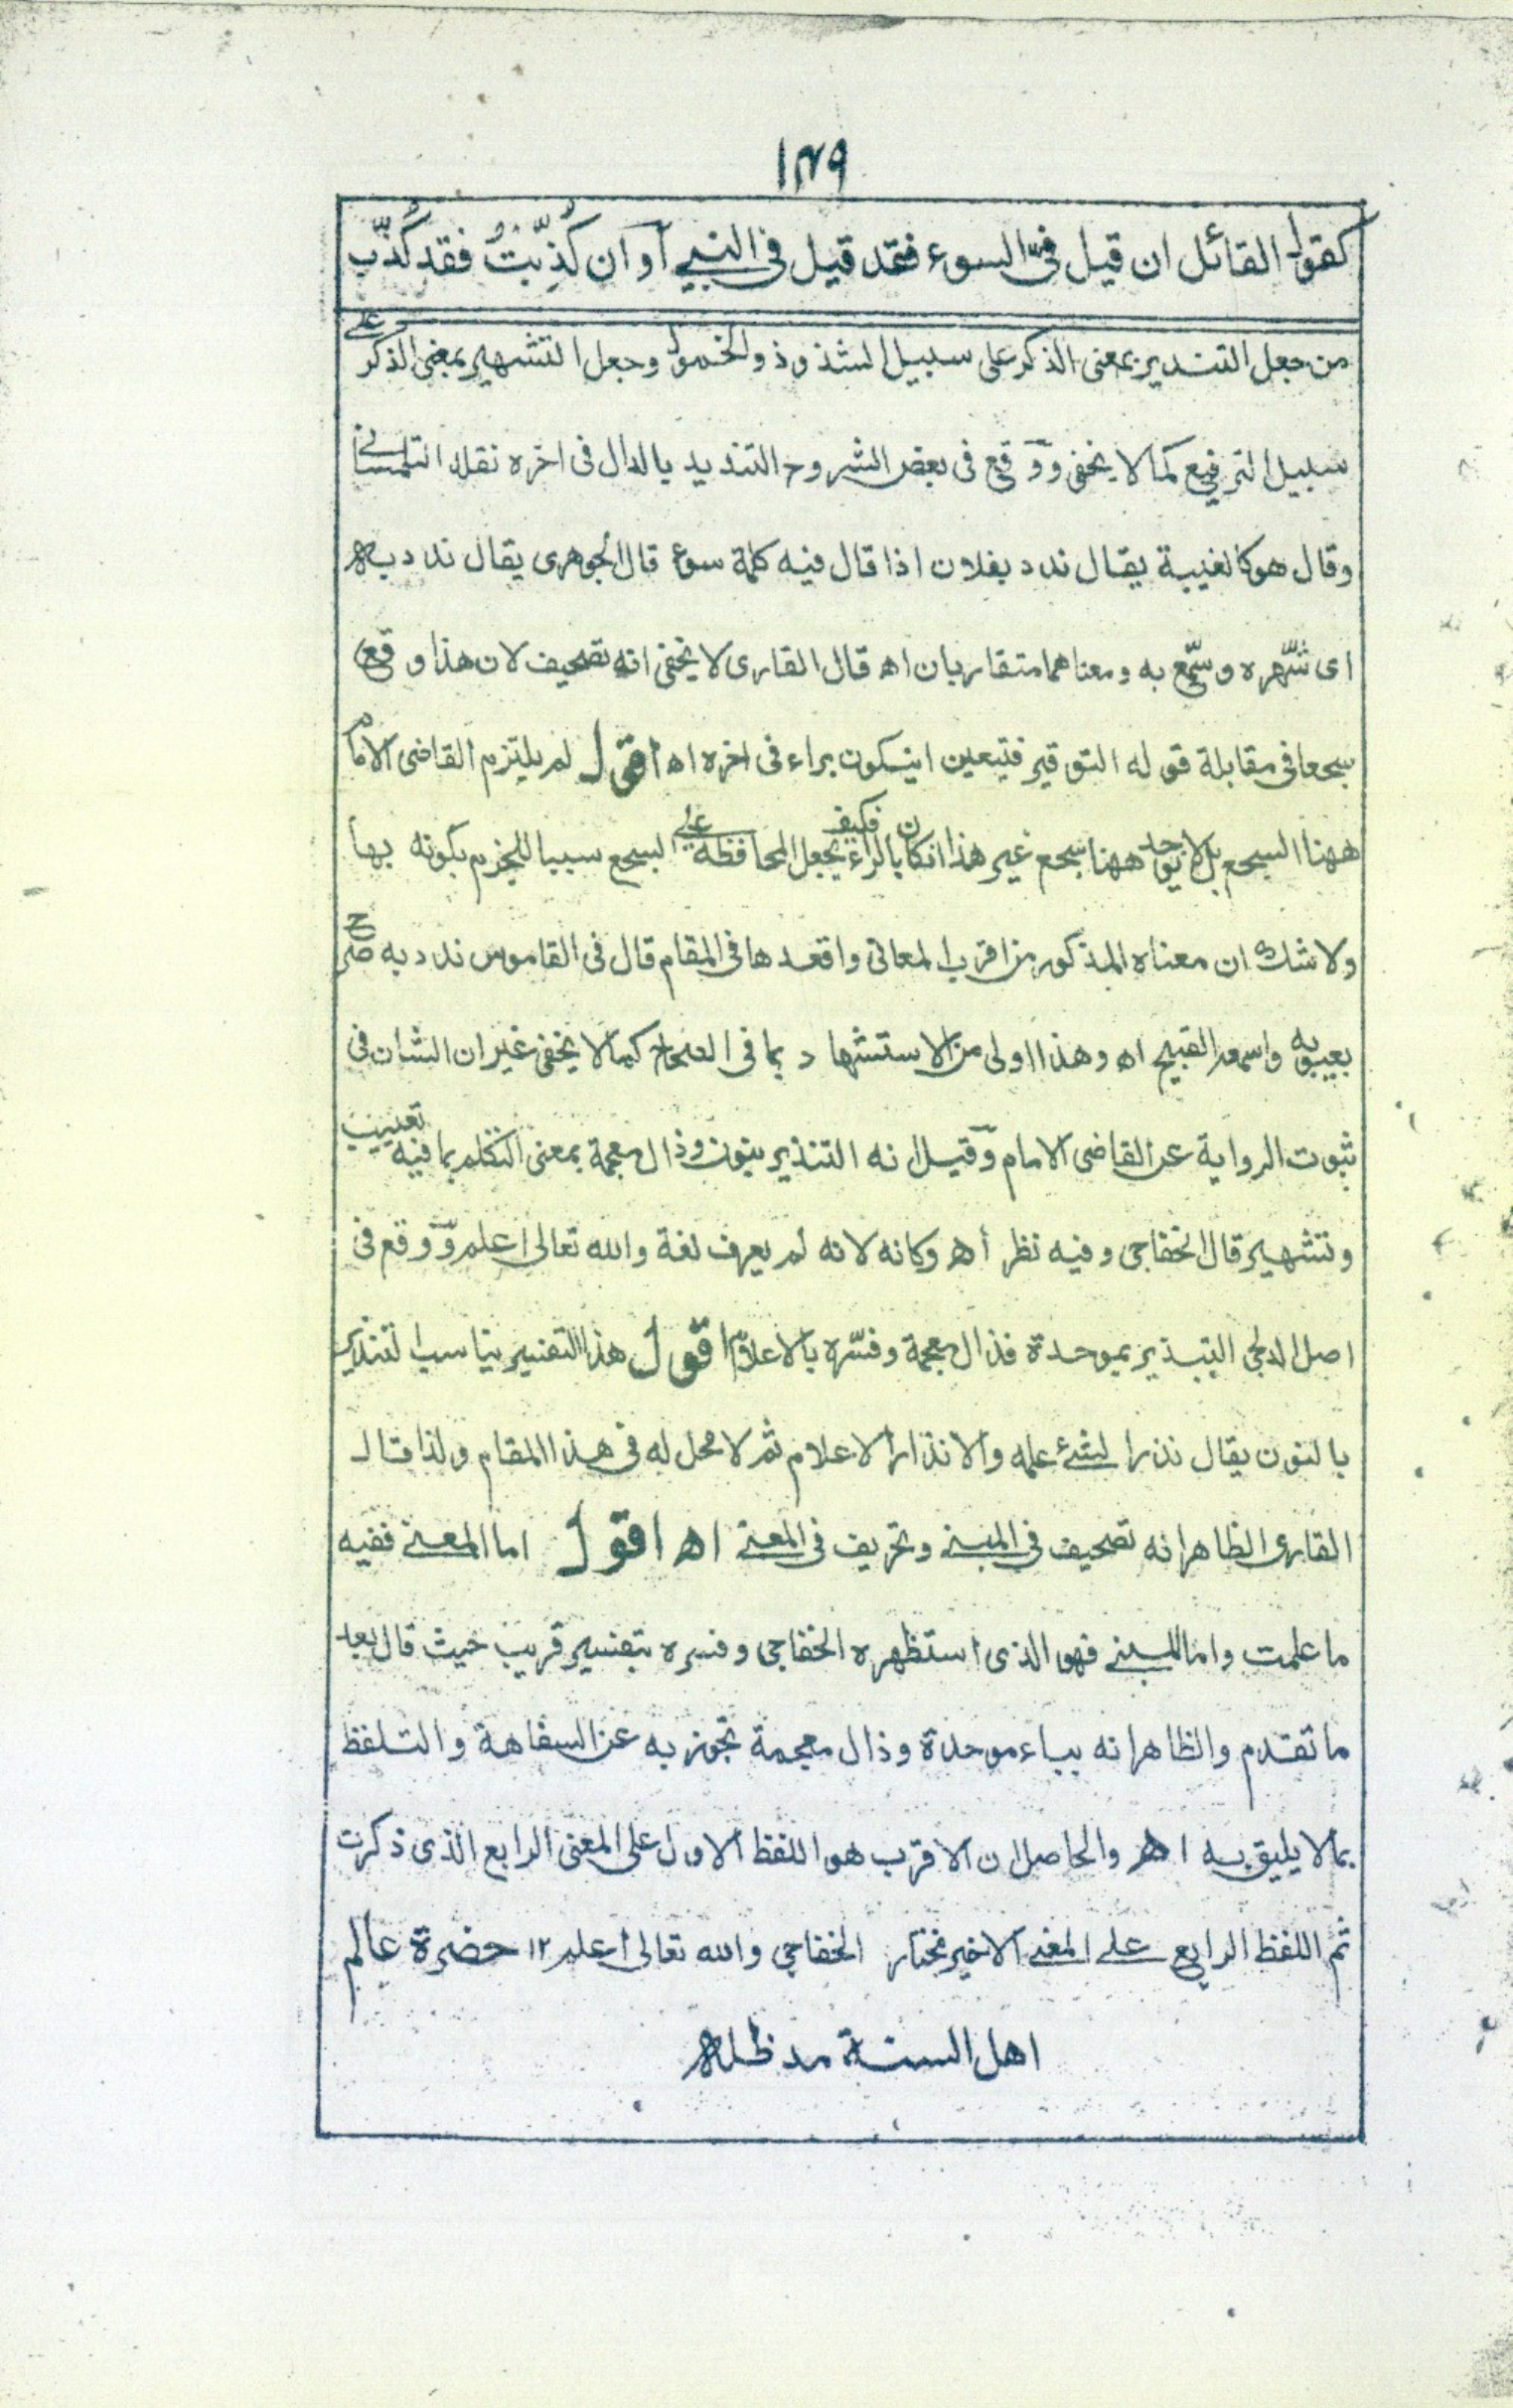 ١٣٩
كقول القائل ان قيل فىّ السوء فقد قيل فى النبي أو ان كُذِّبتُ فقد كُذّب
من جعل التنديز بمعنى الذكر على سبيل الشذوذ والخمول وجعل التشهير بمعنى الذكر على
سبيل الترفيع كما لا يخفى ووقع فى بعض الشروح التنديد بالدال فى اخره نقله التلمسانى
وقال هو كالغيبة يقال ندد بفلان اذا قال فيه كلمة سوء قال الجوهرى يقال ندد به
اى شهّره وسمّع به ومعناهما متقاربان اه قال القارى لا يخفى انه تصحيف لان هذا وقع
سجعا فى مقابلة قوله التوقير فتيعين ان يكون براء فى اخره اه اقول لم يلتزم القاضى الامام
ههنا السجع بل لا يوجد ههنا سجع غير هذا ان كان بالراء فكيف يجعل المحافظة على السجع سببا للجزم بكونه بها
ولا شك ان معناه المذكور من اقرب المعانى واقعدها فى المقام قال فى القاموس ندد به صرح
بعيوبه واسمعه القبيح اه وهذا اولى من الاستشهاد بما فى الصحاح كما لا يخفى غير ان الشان فى
ثبوت الرواية عن القاضى الامام وقيل انه التنذير بنون وذال معجمة بمعنى التكلم بما فيه تعييب
وتشهير قال الخفاجى وفيه نظر أه وكانه لانه لم يعرف لغة والله تعالى اعلم ووقع فى
اصل الدلجى التبذير بموحدة فذال معجمة وفسّره بالاعلام اقول هذا التفسير يناسب التنذير
بالنون يقال نذر الشئ علمه والانذار الاعلام ثم لا محل له فى هذا المقام ولذا قال
القارى الظاهر انه تصحيف فى المبنى وتحريف فى المعنى اه اقول اما المعنى ففيه
ما علمت واما المبنى فهو الذى استظهره الخفاجى وفسره بتفسير قريب حيث قال بعد
ما تقدم والظاهر انه بباء موحدة وذال معجمة تجوز به عن السفاهة والتلفظ
بما لا يليق به اه والحاصل ان الاقرب هو اللفظ الاول على المعنى الرابع الذى ذكرت
ثم اللفظ الرابع على المعنى الاخير مختار الخفاجى والله تعالى اعلم ١٢ حضرة عالم
اهل السنة مد ظله